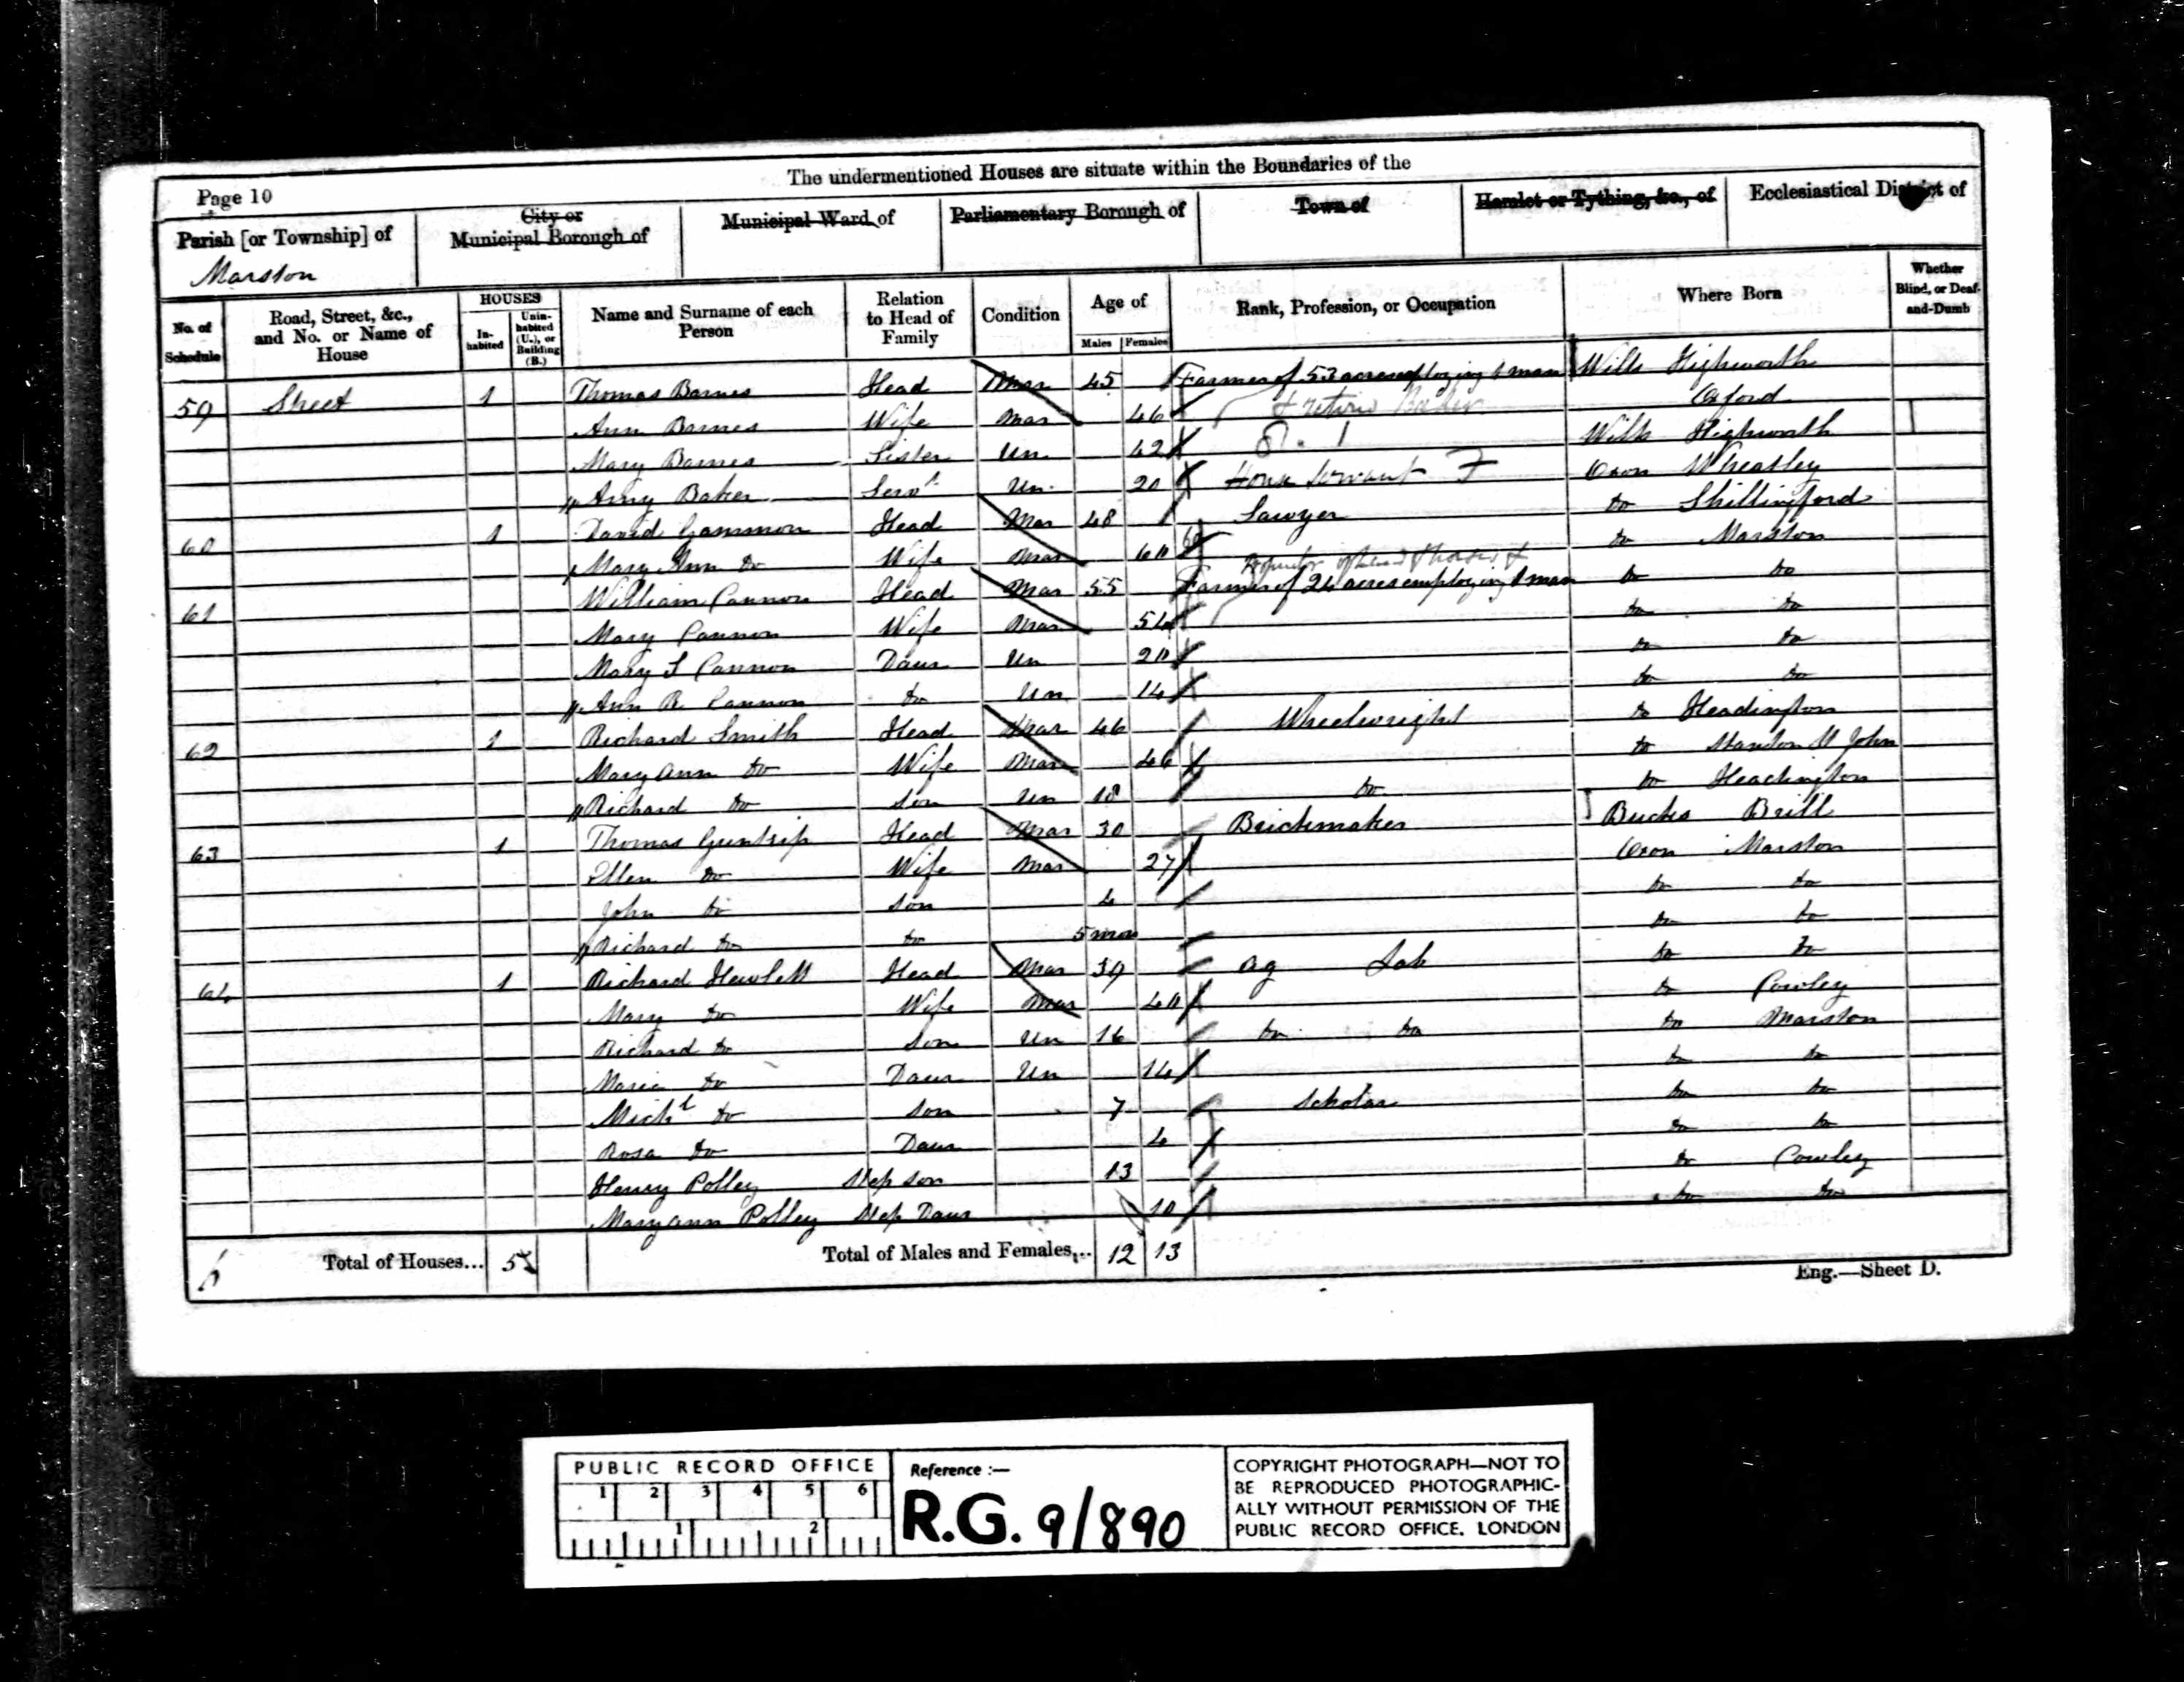 The undermentioned Houses are situate within the Boundaries of the
Page 10
Parish [or Township] of
Marston
City or
Municipal Borough of
Municipal Ward of
Parliamentary Borough of
Town of
Hamlet or Tything, &c., of
Ecclesiastical District of
No. of Schedule
Road, Street, &c., and No. or Name of House
HOUSES
In-habited
Unin-habited (U.), or Building (B.)
Name and Surname of each Person
Relation to Head of Family
Condition
Age of
Males Females
Rank, Profession, or Occupation
Where Born
Whether Blind, or Deaf-and-Dumb
59 Street 1 Thomas Barnes Head Mar 45 Farmer of 53 acres employing man Wilts Highworth
Ann Barnes Wife Mar 46 Oxford
Mary Barnes Sister Un 42 Wilts Highworth
Amy Baker Servt Un 20 House Servant Oxon Wheatley
60 1 David Gammon Head Mar 48 Sawyer do Shillingford
Mary Ann do Wife Mar do Marston
61 William Cannon Head Mar 55 Farmer of 24 acres employing 1 man do do
Mary Cannon Wife Mar 54 do do
Mary S Cannon Daur Un 20 do do
Ann R. Cannon do Un 14 do do
62 1 Richard Smith Head Mar 46 Wheelwright do Headington
Mary Ann do Wife Mar 46 do Standon St John
Richard do Son Un 18 do do Headington
63 1 Thomas Guntrip Head Mar 30 Brickmaker Bucks Brill
Ellen do Wife Mar 27 Oxon Marston
John do Son 4 do do
Richard do do 5 mos do do
64 1 Richard Hewlett Head Mar 39 Ag Lab do do
Mary do Wife Mar 40 do Cowley
Richard do Son Un 16 do do do Marston
Maria do Daur Un 14 do do
Michl do Son 7 Scholar do do
Rosa do Daur 4 do do
Henry Polley Step son 13 do Cowley
Mary Ann Polley Step Daur 10 do do
Total of Houses... 5
Total of Males and Females... 12 13
Eng.—Sheet D.
PUBLIC RECORD OFFICE
1 2 3 4 5 6
1 2
Reference :—
R.G. 9/890
COPYRIGHT PHOTOGRAPH—NOT TO
BE REPRODUCED PHOTOGRAPHIC-
ALLY WITHOUT PERMISSION OF THE
PUBLIC RECORD OFFICE, LONDON